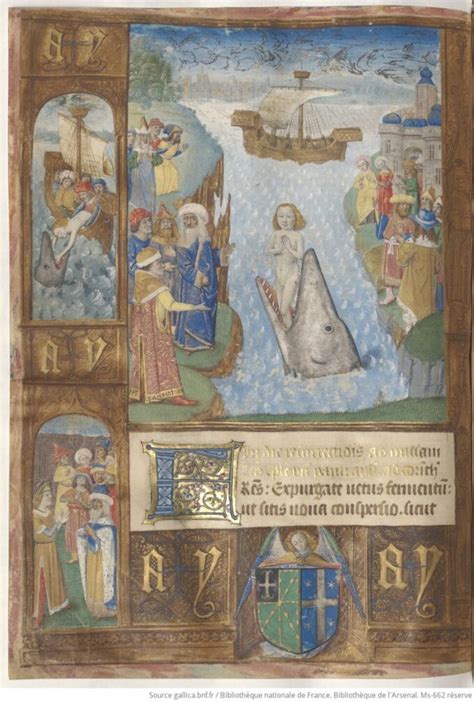 A Y
A Y
In die resurrectiōis ad missam
ad corinth
FRēs: Expurgate uetus fermentū
ut sitis noua conspersio. sicut
A Y
A Y
Source gallica.bnf.fr / Bibliothèque nationale de France. Bibliothèque de l'Arsenal. Ms-662 réserve